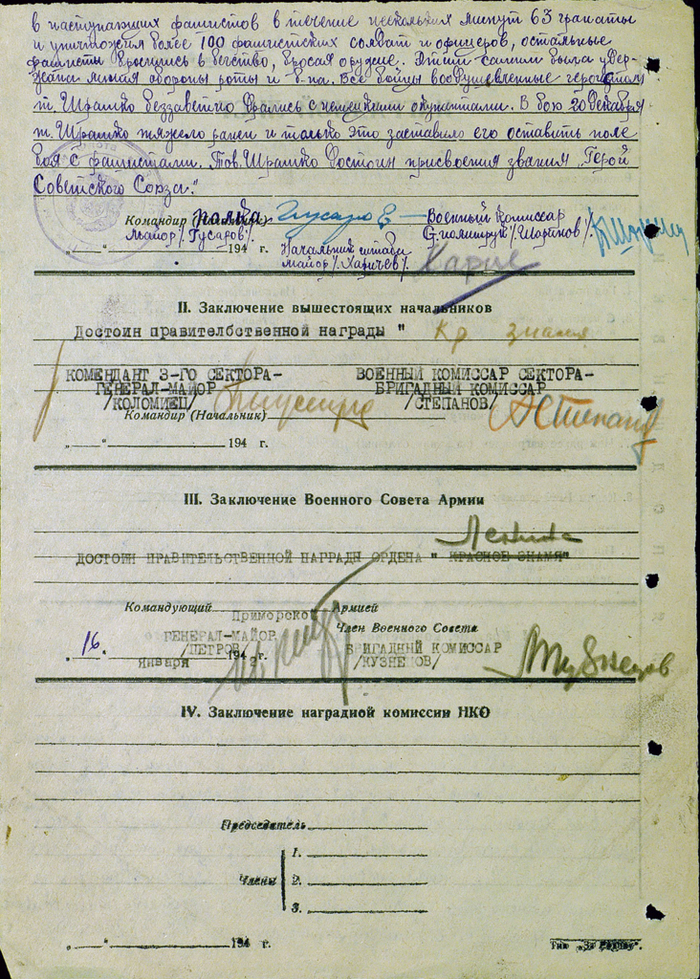 в наступающих фашистов в течение нескольких минут 63 гранаты
и уничтожил более 100 фашистских солдат и офицеров, остальные
фашисты бросились в бегство, бросая оружие. Этим самим была удер-
жана линия обороны роты и б-на. Все бойцы воодушевленные героизмом
т. Шрамко беззаветно дрались с немецкими окупантами. В бою 20 декабря
т. Шрамко тяжело ранен и только это заставило его оставить поле
боя с фашистами. Тов. Шрамко достоин присвоения звания „Герой
Советского Союза."
Командир (Начальник) полка Гусаров Военный Комиссар
Майор /Гусаров/ Ст. политрук /Шортнов/
„ “ 194 г. Начальник штаба
майор /Харичев/
II. Заключение вышестоящих начальников
Достоин правителбственной награды " Кр знамя
КОМЕНДАНТ 3-ГО СЕКТОРА- ВОЕННЫЙ КОМИССАР СЕКТОРА-
ГЕНЕРАЛ-МАЙОР БРИГАДНЫЙ КОМИССАР
/КОЛОМИЕЦ/ /СТЕПАНОВ/
Командир (Начальник)
„ “ 194 г.
III. Заключение Военного Совета Армии
Ленина
ДОСТОИН ПРАВИТЕЛЬСТВЕННОЙ НАГРАДЫ ОРДЕНА " КРАСНОЕ ЗНАМЯ"
Командующий Приморской Армией
ГЕНЕРАЛ-МАЙОР Член Военного Совета
„ 16. /ПЕТРОВ/ БРИГАДНЫЙ КОМИССАР
января 1942 /КУЗНЕЦОВ/
IV. Заключение наградной комиссии НКО
Председатель
1.
Члены 2.
3.
„ “ 194 г.